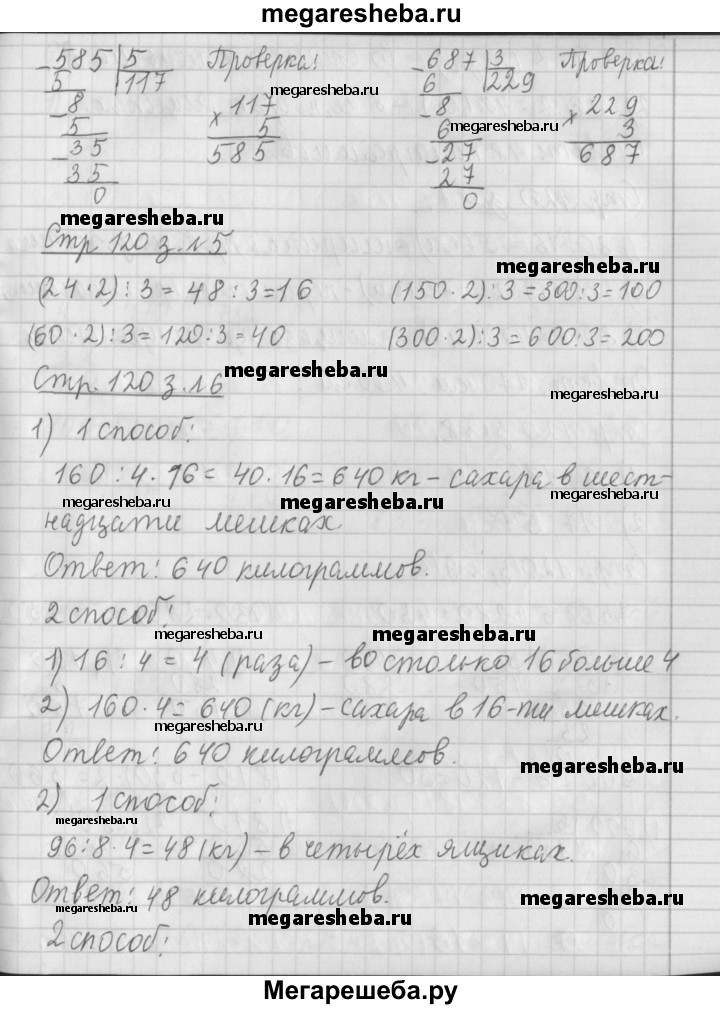 megaresheba.ru
585 | 5 Проверка! 687 | 3 Проверка!
5 117 megaresheba.ru 6 229
8 × 117 8 megaresheba.ru × 229
5 5 6 3
35 585 27 687
35 27
0 0
megaresheba.ru
Стр. 120 з. №5
megaresheba.ru
(24·2):3=48:3=16 (150·2):3=300:3=100
(60·2):3=120:3=40 (300·2):3=600:3=200
Стр. 120 з. №6 megaresheba.ru
megaresheba.ru
1) 1 способ:
160:4·16=40·16=640 кг – сахара в шест-
megaresheba.ru megaresheba.ru megaresheba.ru
надцати мешках.
Ответ: 640 килограммов.
2 способ:
megaresheba.ru megaresheba.ru
1) 16:4=4 (раза) – во столько 16 больше 4
2) 160·4=640 (кг) – сахара в 16-ти мешках.
megaresheba.ru
Ответ: 640 килограммов.
megaresheba.ru
2) 1 способ:
megaresheba.ru
96:8·4=48 (кг) – в четырёх ящиках.
Ответ: 48 килограммов.
megaresheba.ru megaresheba.ru megaresheba.ru
2 способ:
Мегарешеба.ру